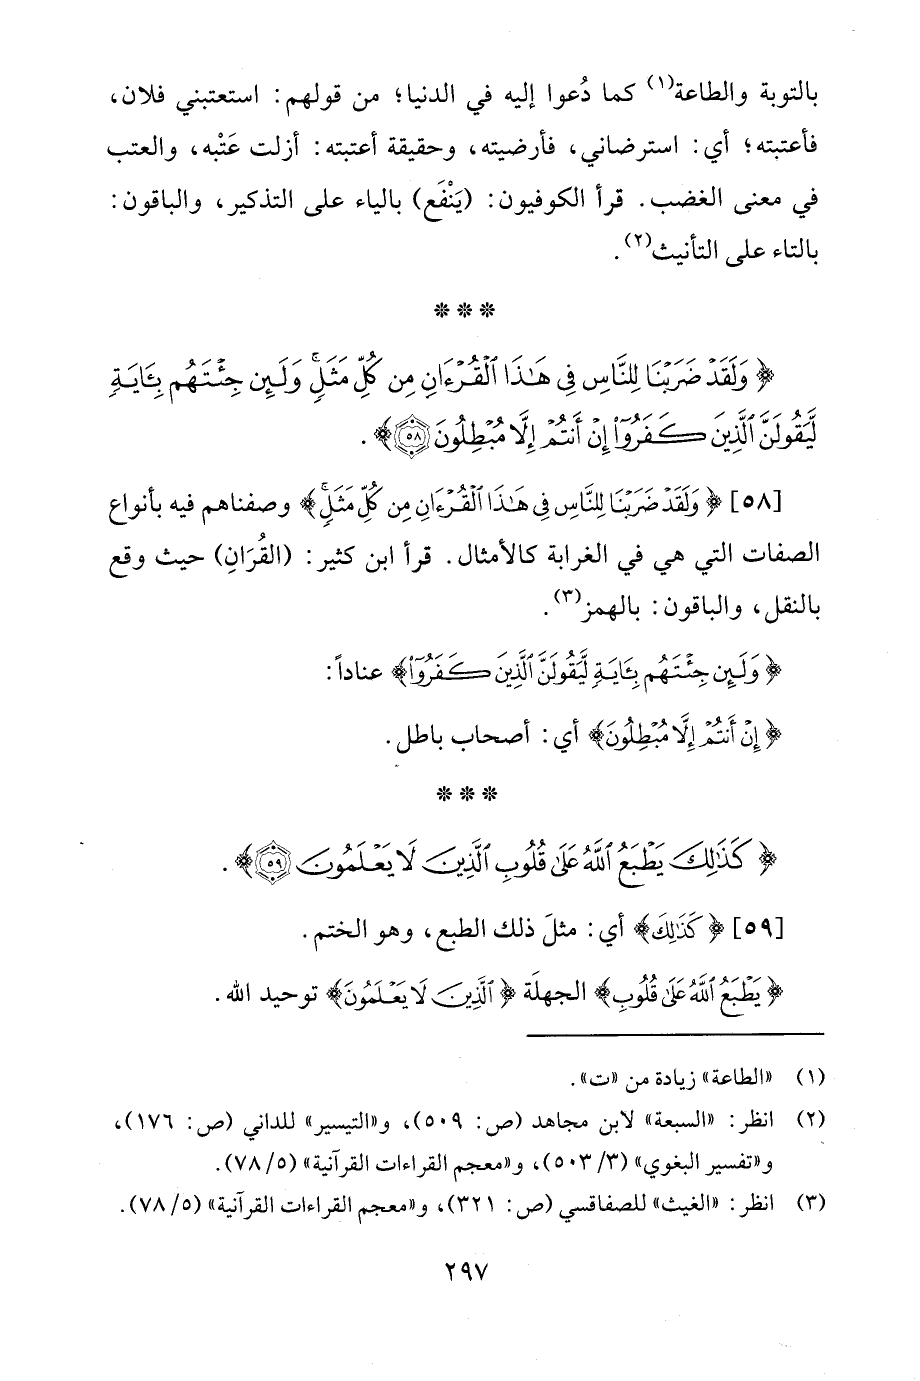 بالتوبة والطاعة(١) كما دُعوا إليه في الدنيا؛ من قولهم: استعتبني فلان،
فأعتبته؛ أي: استرضاني، فأرضيته، وحقيقة أعتبته: أزلت عَتْبه، والعتب
في معنى الغضب. قرأ الكوفيون: (يَنْفَع) بالياء على التذكير، والباقون:
بالتاء على التأنيث(٢).
* * *
﴿ وَلَقَدْ ضَرَبْنَا لِلنَّاسِ فِى هَٰذَا ٱلْقُرْءَانِ مِن كُلِّ مَثَلٍۚ وَلَئِن جِئْتَهُم بِـَٔايَةٍ
لَّيَقُولَنَّ ٱلَّذِينَ كَفَرُوٓا۟ إِنْ أَنتُمْ إِلَّا مُبْطِلُونَ ٥٨﴾.
[٥٨] ﴿ وَلَقَدْ ضَرَبْنَا لِلنَّاسِ فِى هَٰذَا ٱلْقُرْءَانِ مِن كُلِّ مَثَلٍۚ﴾ وصفناهم فيه بأنواع
الصفات التي هي في الغرابة كالأمثال. قرأ ابن كثير: (القُرَانِ) حيث وقع
بالنقل، والباقون: بالهمز(٣).
﴿ وَلَئِن جِئْتَهُم بِـَٔايَةٍ لَّيَقُولَنَّ ٱلَّذِينَ كَفَرُوٓا۟﴾ عناداً:
﴿ إِنْ أَنتُمْ إِلَّا مُبْطِلُونَ﴾ أي: أصحاب باطل.
* * *
﴿ كَذَٰلِكَ يَطْبَعُ ٱللَّهُ عَلَىٰ قُلُوبِ ٱلَّذِينَ لَا يَعْلَمُونَ ٥٩﴾.
[٥٩] ﴿ كَذَٰلِكَ﴾ أي: مثلَ ذلك الطبع، وهو الختم.
﴿ يَطْبَعُ ٱللَّهُ عَلَىٰ قُلُوبِ﴾ الجهلَة ﴿ ٱلَّذِينَ لَا يَعْلَمُونَ﴾ توحيد الله.
(١) «الطاعة» زيادة من «ت».
(٢) انظر: «السبعة» لابن مجاهد (ص: ٥٠٩)، و«التيسير» للداني (ص: ١٧٦)،
و«تفسير البغوي» (٣/ ٥٠٣)، و«معجم القراءات القرآنية» (٥/ ٧٨).
(٣) انظر: «الغيث» للصفاقسي (ص: ٣٢١)، و«معجم القراءات القرآنية» (٥/ ٧٨).
٢٩٧